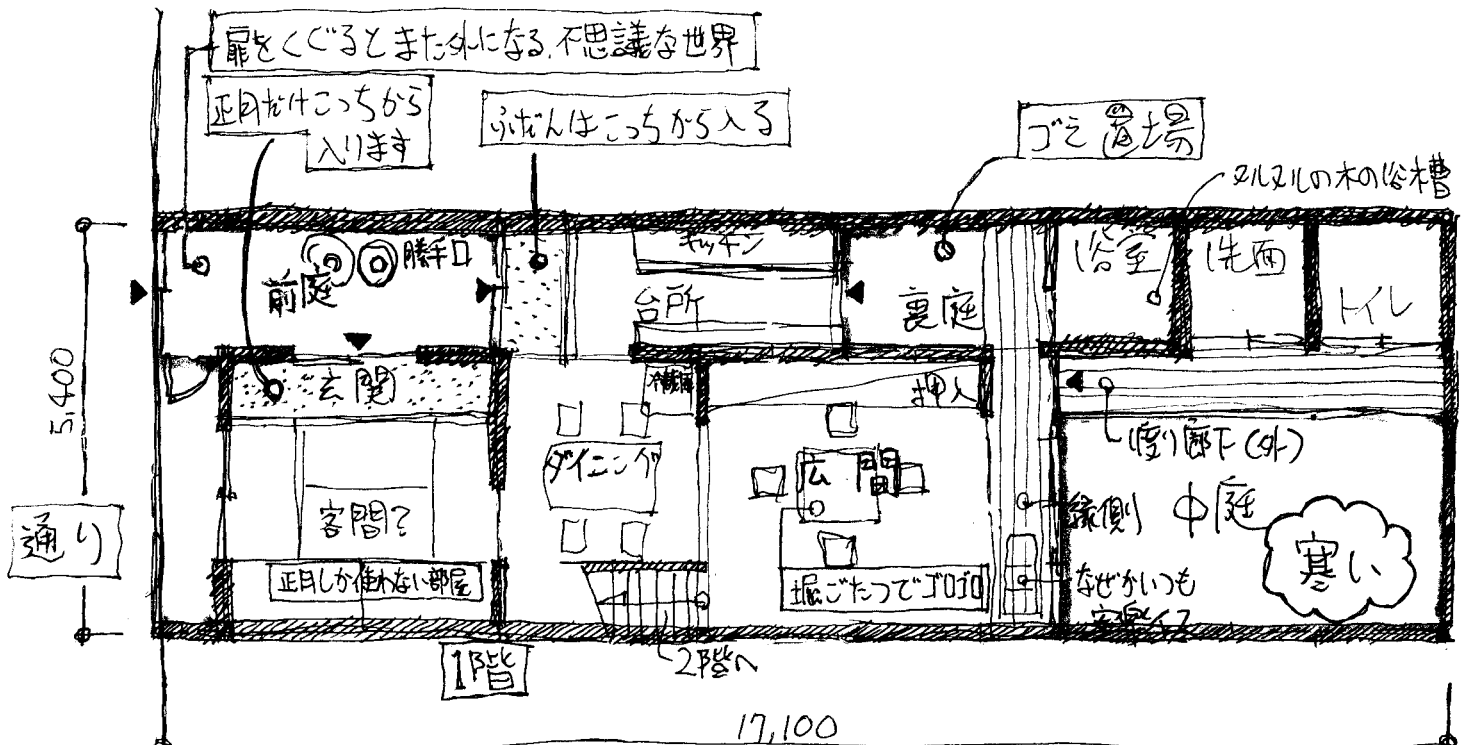 扉をくぐるとまた外になる、不思議な世界
正月だけこっちから
入ります
ふだんはこっちから入る
ゴミ置場
ヌルヌルの木の浴槽
勝手口
前庭
キッチン
台所
裏庭
浴室
洗面
トイレ
玄関
押入
ダイニング
広間
渡り廊下(外)
縁側
中庭
寒い
客間?
正月しか使わない部屋
堀ごたつでゴロゴロ
なぜかいつも
通り
5,400
1階
2階へ
17,100